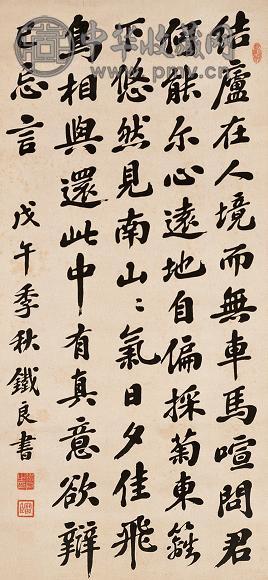 中华收藏网
結廬在人境而無車馬喧問君
何能尔心遠地自偏採菊東籬
下悠然見南山〻氣日夕佳飛
鳥相與還此中有真意欲辯
已忘言
戊午季秋鐵良書